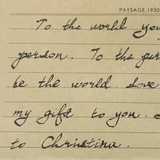 PAYSAGE, 1920
To the world you
person. To the per
be the world. Love
my gift to you.
to Christina.